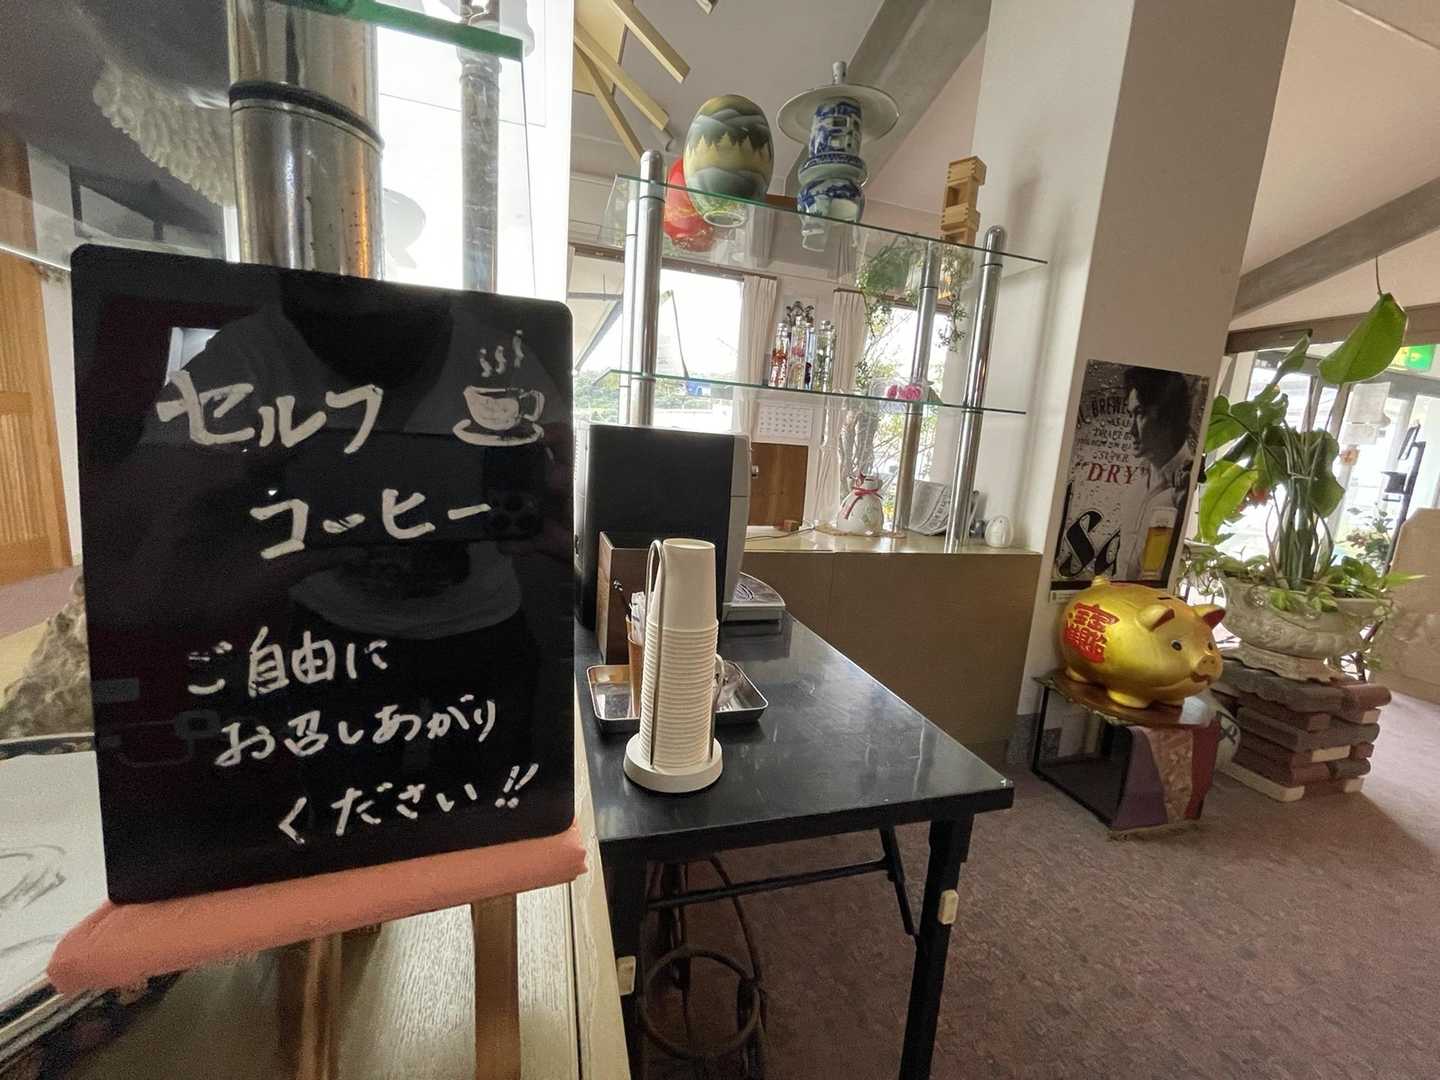 セルフ
コーヒー
ご自由に
お召しあがり
ください!!
DRAFT BE
SUPER
"DRY"
招財